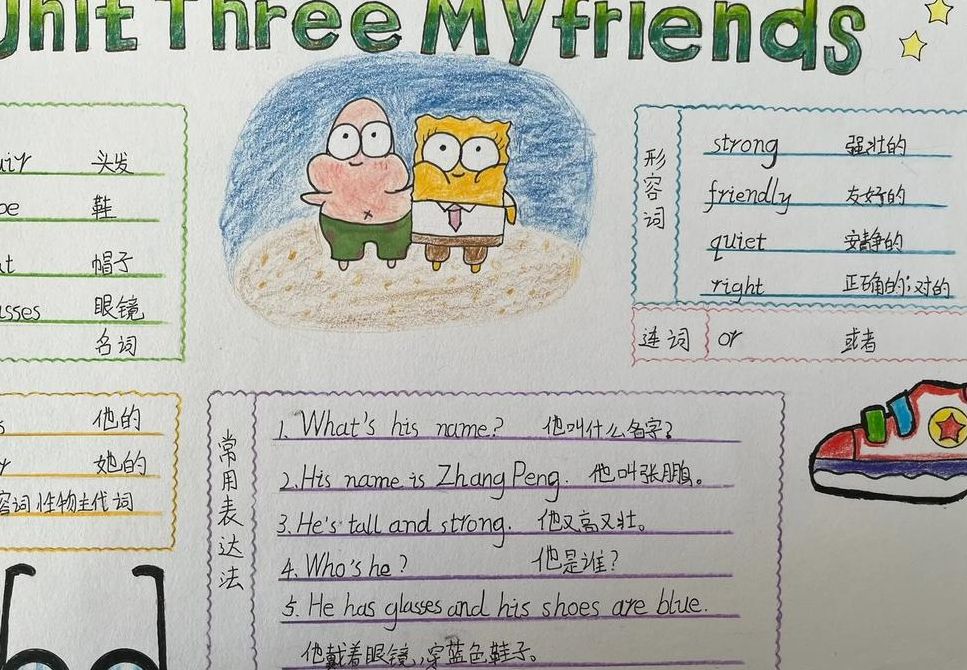 Unit Three My friends
头发
鞋
帽子
眼镜
名词
他的
她的
容词性物主代词
形容词
strong 强壮的
friendly 友好的
quiet 安静的
right 正确的;对的
连词 or 或者
常用表达法
1. What's his name? 他叫什么名字?
2. His name is Zhang Peng. 他叫张鹏。
3. He's tall and strong. 他又高又壮。
4. Who's he? 他是谁?
5. He has glasses and his shoes are blue.
他戴着眼镜,穿蓝色鞋子。